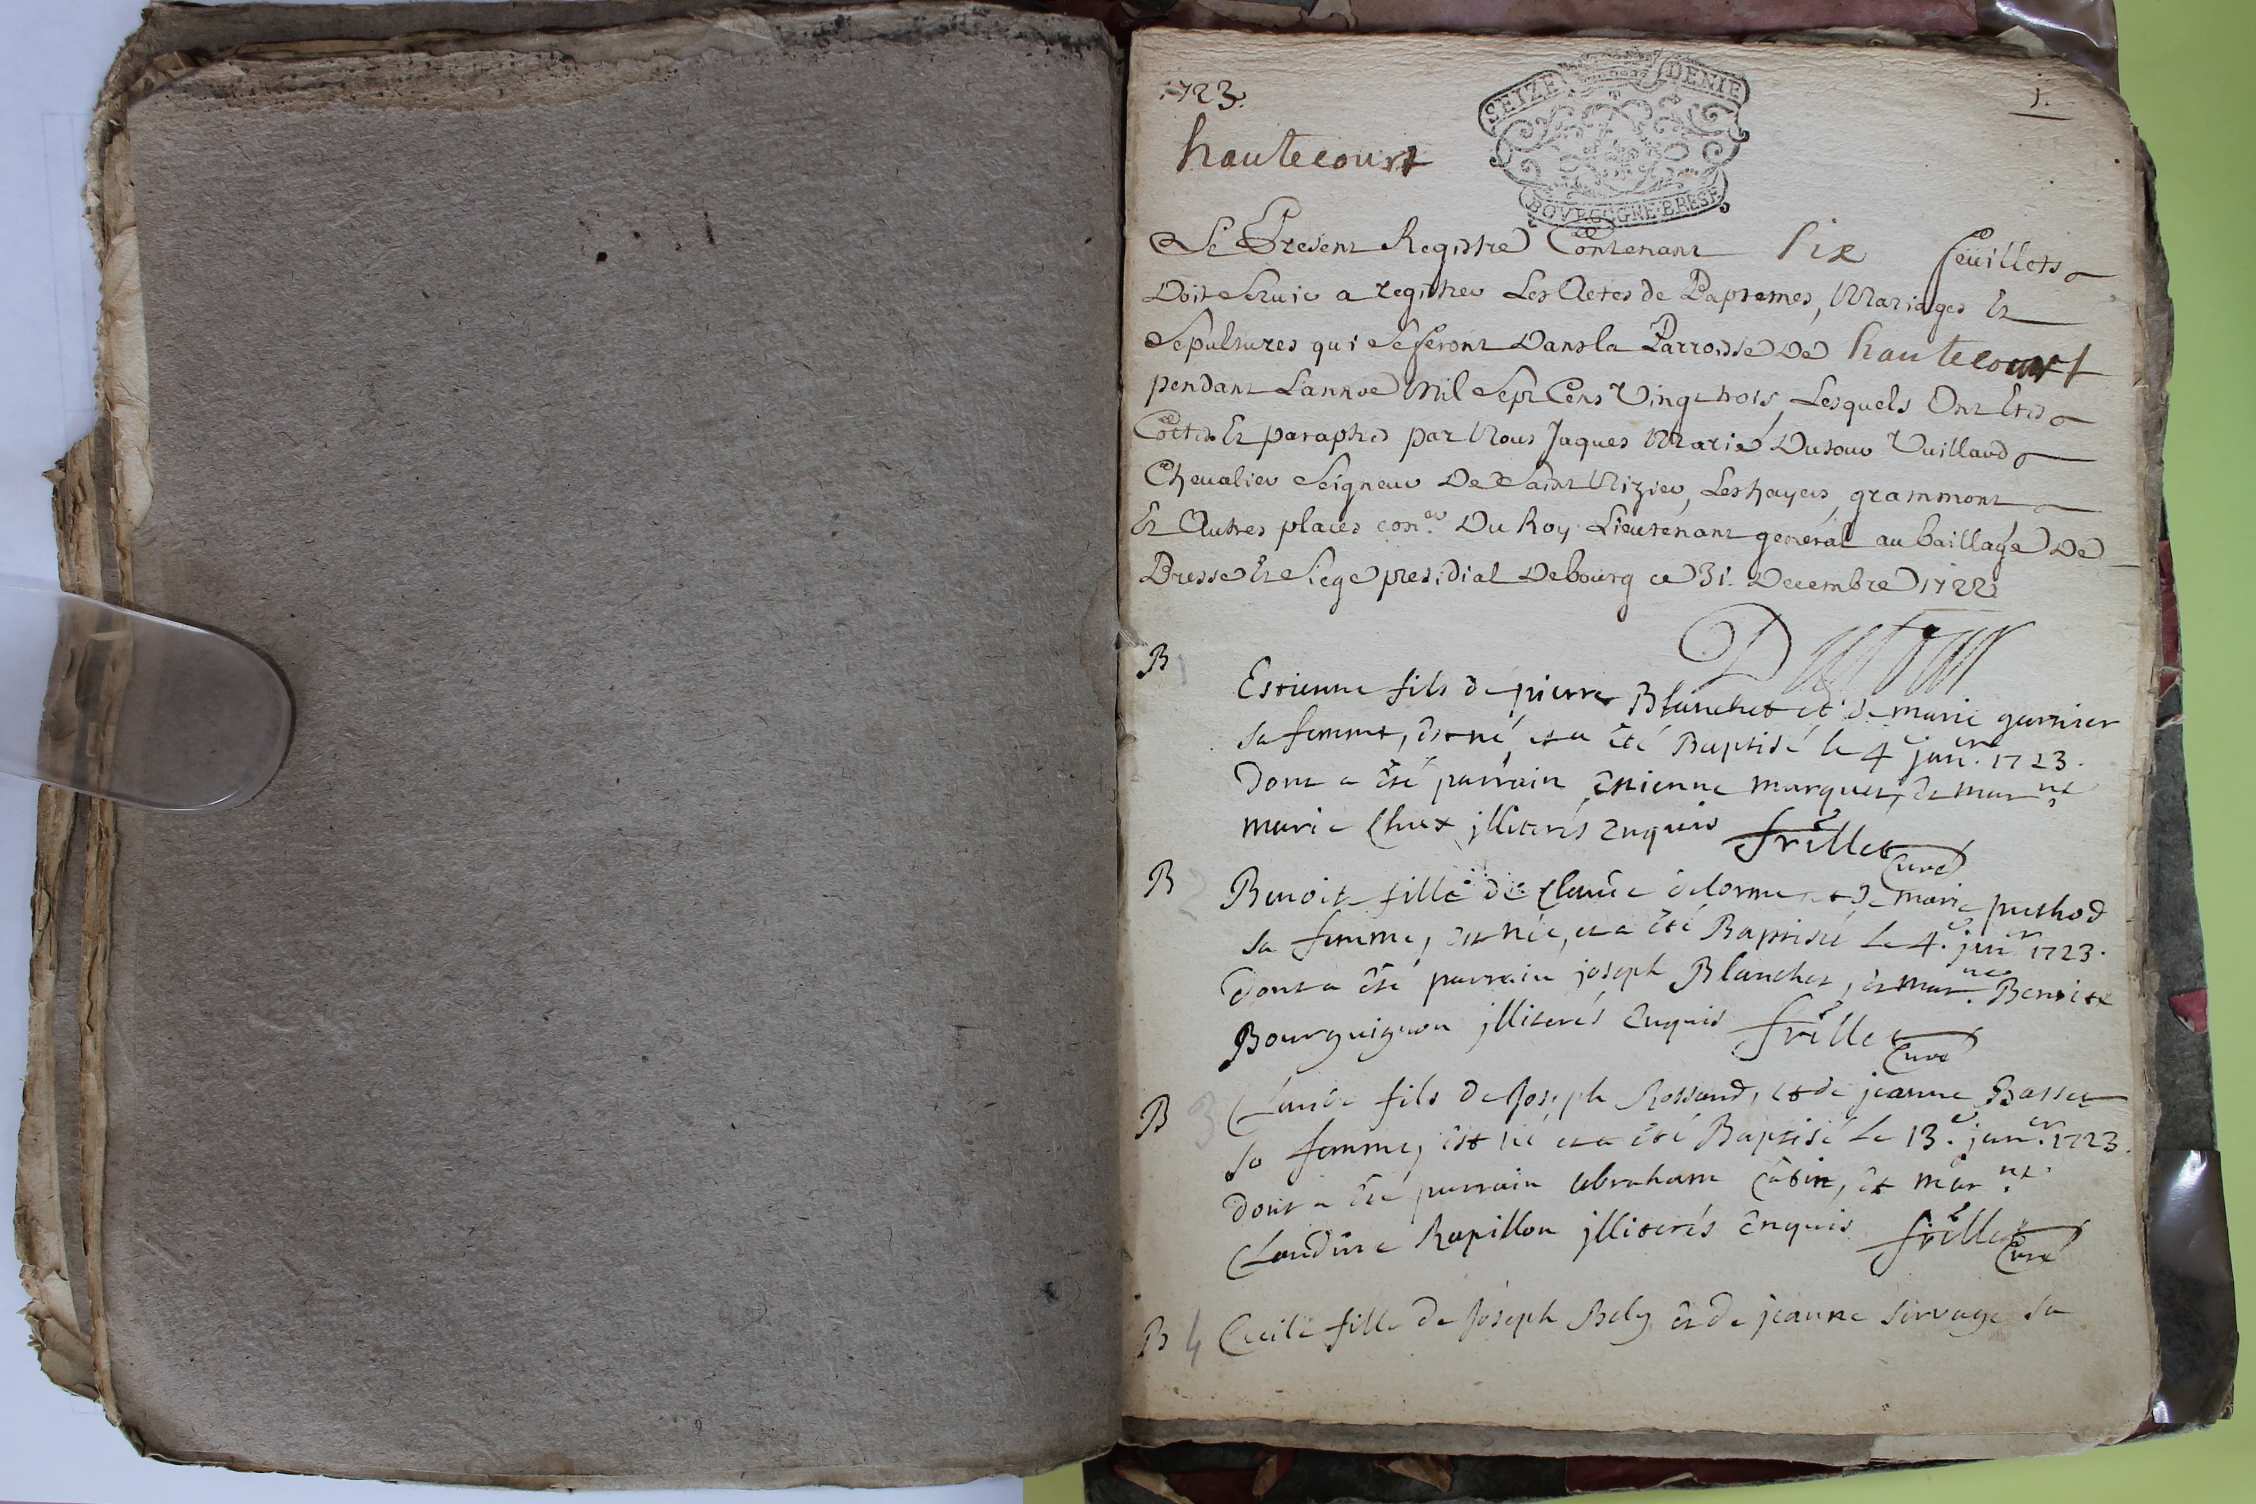 1723.
1.
SEIZE DENIE
BOVRGOGNE BRESE
hautecourt
Le Present Registre Contenant six feuillets
Doit Servir a registrer Les Actes de Baptemes, Mariages Et
Sepultures qui Se feront Dans la Parroisse De hautecourt
pendant L'année Mil Sept Cens Vingt trois, Lesquels Ont Etés
Cottés Et paraphés par Nous Jaques Marie Dutour Vuillard
Chevalier Seigneur De Saint Nizier, Les hayes, grammont
Et Autres places con.er Du Roy Lieutenant general au baillage De
Bresse Et Siege presidial De bourg ce 31. Decembre 1722
Dutour
B 1 Estienne fils de pierre Blanchet et de marie garnier
sa femme, est né, et a été Baptisé le 4e janer. 1723.
Dont a été parrain Etienne marquet, et marne
marie Chat jlliterés Enquis frillet Curé
B 2 Benoite fille de Claude delorme et de marie puthod
sa femme, est née, et a été Baptisée Le 4.e janer 1723.
Dont a été parrain joseph Blanchet, et marne. Benoite
Bourguignon jlliterés Enquis frillet Curé
B 3 Claude fils de Joseph Rossand, et de jeanne Basset
sa femme, est né et a été Baptisé Le 13.e janer. 1723.
Dont a été parrain abraham Cabin, et marne
Claudine Rapillon jlliterés Enquis frillet Curé
B 4 Cecile fille de Joseph Bely et de jeanne servage sa